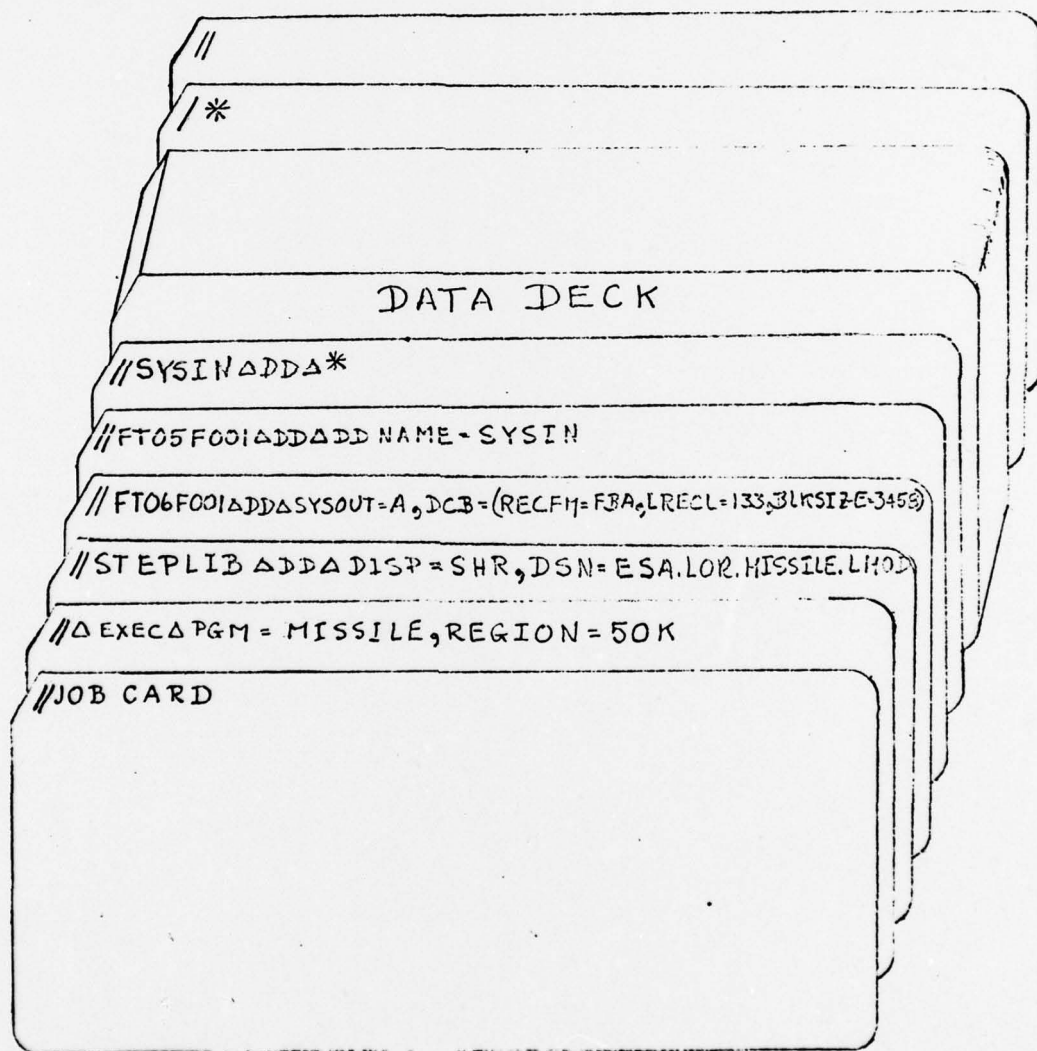 //
/*
DATA DECK
//SYSIN∆DD∆*
//FT05F001∆DD∆DDNAME=SYSIN
//FT06F001∆DD∆SYSOUT=A,DCB=(RECFM=FBA,LRECL=133,BLKSIZE=3458)
//STEPLIB∆DD∆DISP=SHR,DSN=ESA.LOR.MISSILE.LMOD
//∆EXEC∆PGM=MISSILE,REGION=50K
//JOB CARD